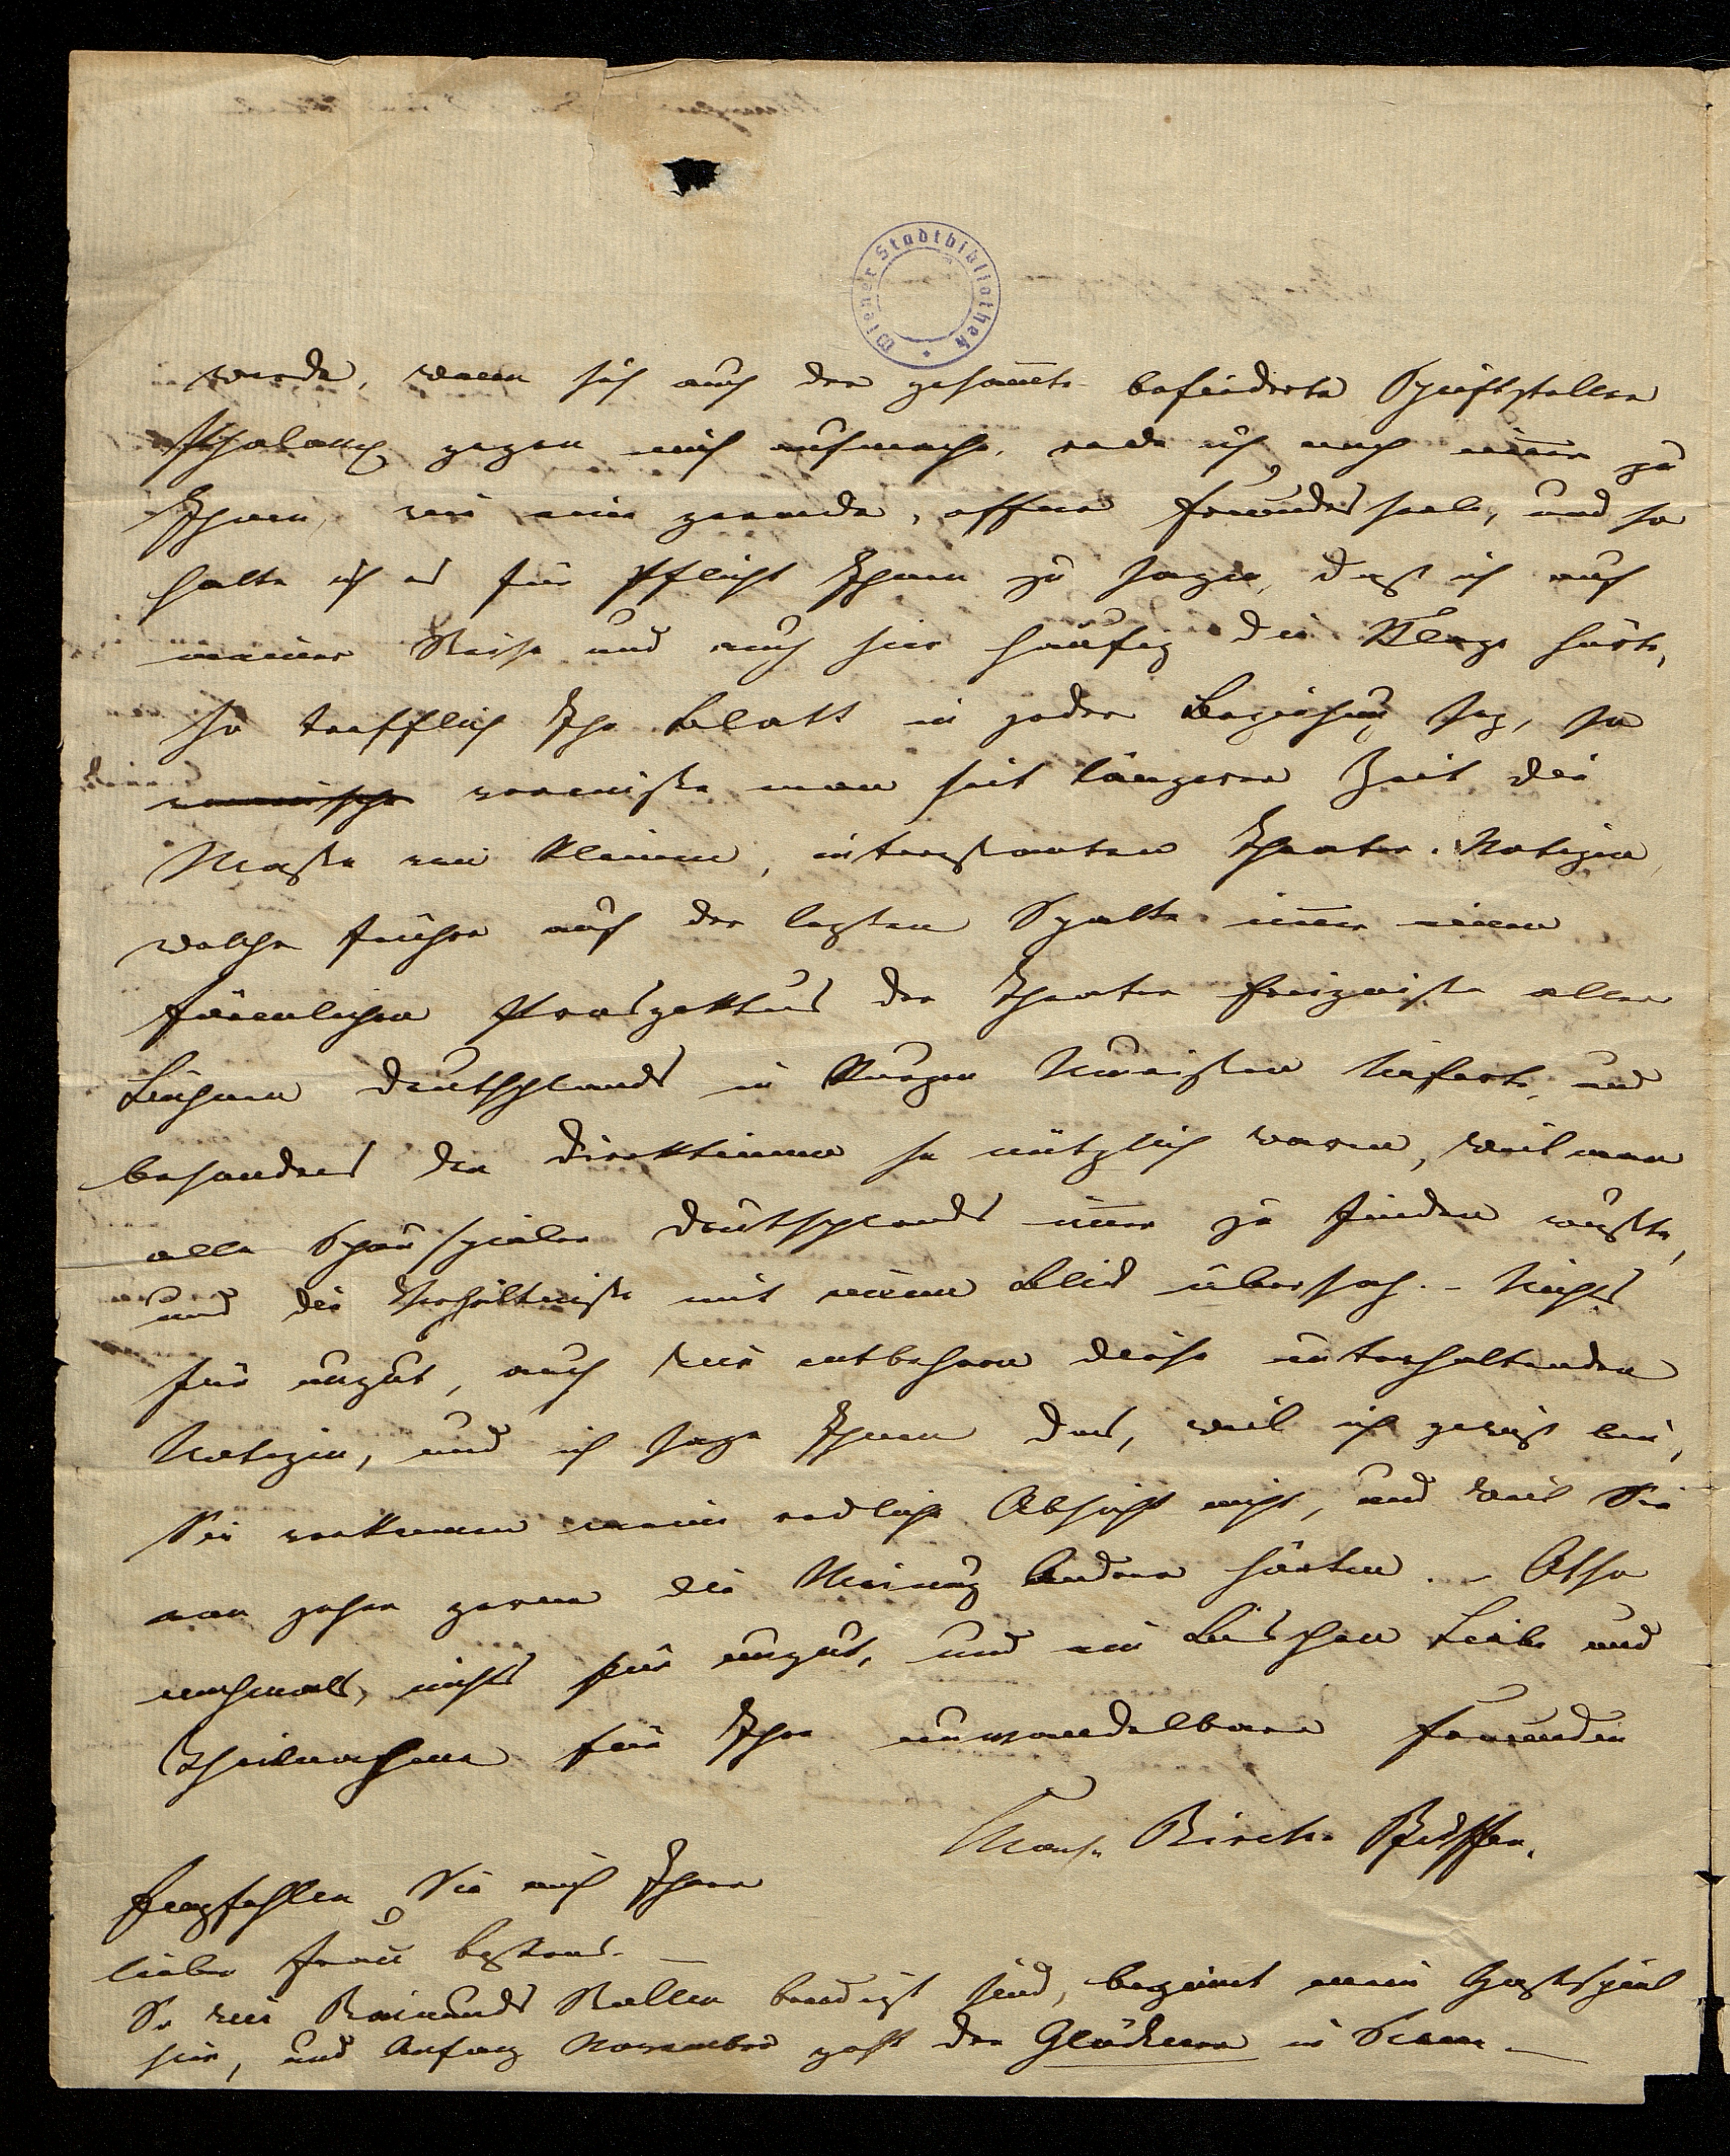 Wiener Stadtbibliothek
werde, wenn sich auch der gesam̅te befiederte Schriftsteller
Phalanx gegen mich aufmacht, rede ich nach wie vor zu
Ihnen, wie eine gerade, offene Freundesseele, und so
halte ich es für Pflicht Ihnen zu sagen, daß ich auf
meiner Reise und auch hier häufig die Klage hörte,
so trefflich Ihr Blatt in jeder Beziehung sey, so
vermisse man seit längerer Zeit die
Masse von kleinen, interessanten Theater-Notizen,
welche früher auf der lezten Spalte im̅er einen
förmlichen Prospektus der Theater Ereignisse aller
Bühnen Deutschlands in kurzen Umrissen lieferte, und
besonders den Direktionen so nützlich waren, weil man
alle Schauspieler Deutschlands im̅er zu finden wußte,
und die Verhältnisse mit einem Blick übersah. – Nichts
für ungut, auch wir entbehren diese unterhaltenden
Notizen, und ich sage Ihnen das, weil ich gewiß bin,
Sie verkennen meine redliche Absicht nicht, und weil Sie
von jeher gerne die Meinung Anderer hörten. – Also
nochmals, nichts für ungut, und ein Bischen Liebe und
Theilnahme für Ihre unwandelbare Freundin
Charl. Birch-Pfeiffer.
Empfehlen Sie mich Ihrer
lieben Frau bestens. –
So wie Raimunds Rollen beendigt sind, beginnt mein Gastspiel
hier, und Anfang November geht der Glöckner in Scene –